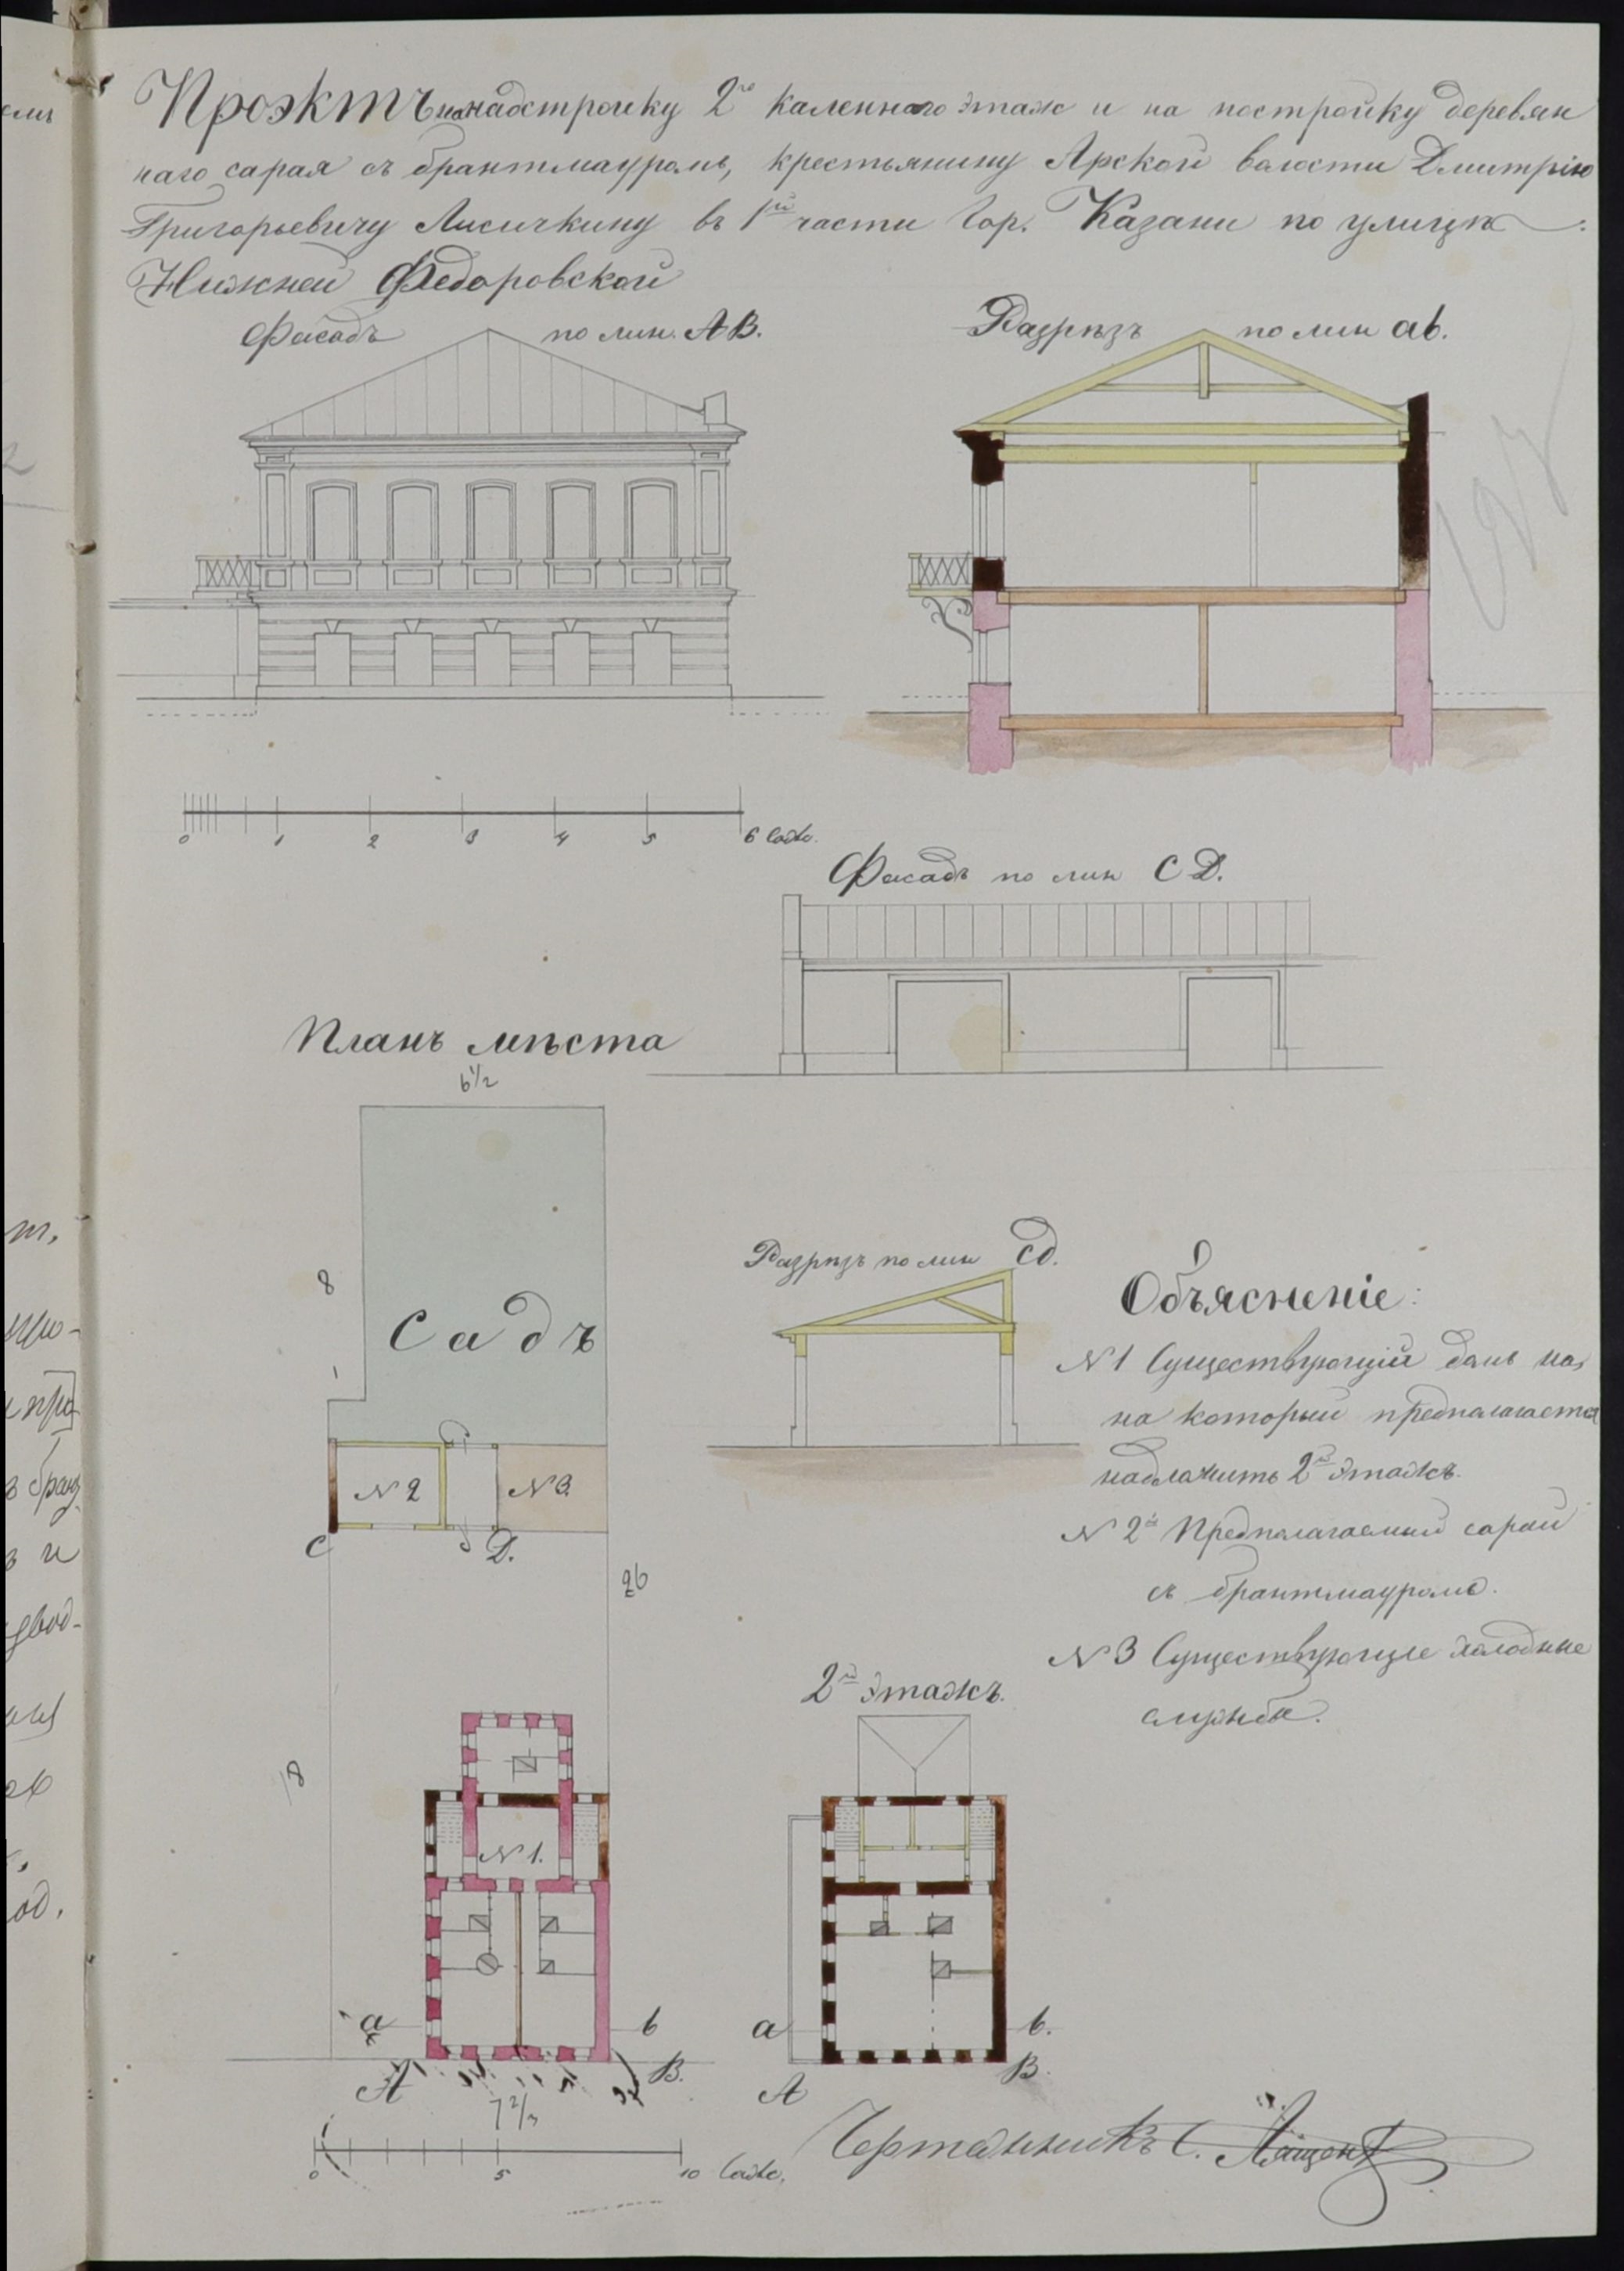 Проэктъ на надстройку 2го каменнаго этаж и на постройку деревян
наго сарая съ брантмауромъ, крестьянину Арской волости Дмитрію
Григорьевичу Лисичкину въ 1й части Гор. Казани по улицѣ
Нижней Федоровской
Фасадъ по лин. АВ.
Разрѣзъ по лин ab.
0 1 2 3 4 5 6 саж.
Фасадъ по лин СD.
Планъ мѣста
6 1/2
8
Садъ
1
Разрѣзъ по лин cd.
Объясненіе:
N 1 Существующій домъ на,
на который предполагается
надложить 2й этажъ.
N 2й Предполагаемый сарай
съ брантмауромъ.
N 3 Существующіе холодные
службы.
N 2
N 3.
С
D.
26
18
2й этажъ.
N 1.
a
b
А
В.
7 2/3
a
b.
А
В.
0 5 10 саж.
Чертежникъ С.